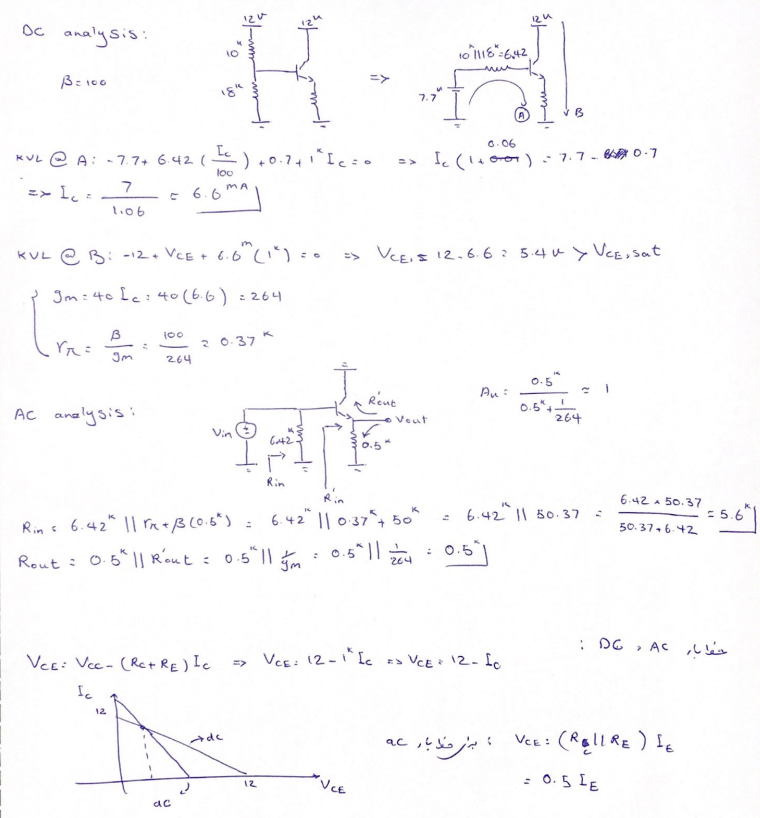 DC analysis:
12V 12V 12V
10ᵏ 10ᵏ||18ᵏ=6.42
β=100 18ᵏ => 7.7ᵛ A B
KVL @ A: -7.7+ 6.42 (Ic/100) +0.7+1ᵏ Ic=0 => Ic (1+0.06) = 7.7 - 0.7
=> Ic = 7/1.06 = 6.6 mA
KVL @ B: -12+ VCE + 6.6ᵐ(1ᵏ) = 0 => VCE, = 12-6.6 = 5.4 V > VCE,sat
gm=40 Ic = 40(6.6) = 264
rπ = β/gm = 100/264 = 0.37 ᵏ
AC analysis: Vin 6.42ᵏ Rin R'in R'out Vout 0.5ᵏ
Au = 0.5ᵏ/(0.5ᵏ+1/264) ≈ 1
Rin = 6.42ᵏ || rπ+β(0.5ᵏ) = 6.42ᵏ || 0.37ᵏ+50ᵏ = 6.42ᵏ || 50.37 = (6.42×50.37)/(50.37+6.42) = 5.6ᵏ
Rout = 0.5ᵏ || R'out = 0.5ᵏ || 1/gm = 0.5ᵏ || 1/264 = 0.5ᵏ
خط بار DC , AC :
VCE = Vcc - (Rc+RE) Ic => VCE = 12-1ᵏ Ic => VCE = 12-Ic
Ic
12
dc
12
VCE
ac
خط بار ac : VCE = (Rc||RE) IE
= 0.5 IE